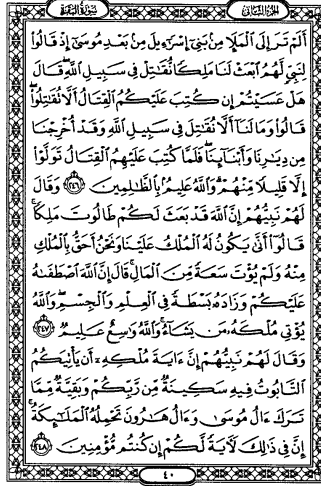 الجزء الثاني
سورة البقرة
أَلَمْ تَرَ إِلَى ٱلْمَلَإِ مِنۢ بَنِىٓ إِسْرَٰٓءِيلَ مِنۢ بَعْدِ مُوسَىٰٓ إِذْ قَالُوا۟
لِنَبِىٍّ لَّهُمُ ٱبْعَثْ لَنَا مَلِكًا نُّقَٰتِلْ فِى سَبِيلِ ٱللَّهِ ۖ قَالَ
هَلْ عَسَيْتُمْ إِن كُتِبَ عَلَيْكُمُ ٱلْقِتَالُ أَلَّا تُقَٰتِلُوا۟ ۖ
قَالُوا۟ وَمَا لَنَآ أَلَّا نُقَٰتِلَ فِى سَبِيلِ ٱللَّهِ وَقَدْ أُخْرِجْنَا
مِن دِيَٰرِنَا وَأَبْنَآئِنَا ۖ فَلَمَّا كُتِبَ عَلَيْهِمُ ٱلْقِتَالُ تَوَلَّوْا۟
إِلَّا قَلِيلًا مِّنْهُمْ ۗ وَٱللَّهُ عَلِيمٌۢ بِٱلظَّٰلِمِينَ ٢٤٦ وَقَالَ
لَهُمْ نَبِيُّهُمْ إِنَّ ٱللَّهَ قَدْ بَعَثَ لَكُمْ طَالُوتَ مَلِكًا ۚ
قَالُوٓا۟ أَنَّىٰ يَكُونُ لَهُ ٱلْمُلْكُ عَلَيْنَا وَنَحْنُ أَحَقُّ بِٱلْمُلْكِ
مِنْهُ وَلَمْ يُؤْتَ سَعَةً مِّنَ ٱلْمَالِ ۚ قَالَ إِنَّ ٱللَّهَ ٱصْطَفَىٰهُ
عَلَيْكُمْ وَزَادَهُۥ بَسْطَةً فِى ٱلْعِلْمِ وَٱلْجِسْمِ ۖ وَٱللَّهُ
يُؤْتِى مُلْكَهُۥ مَن يَشَآءُ ۚ وَٱللَّهُ وَٰسِعٌ عَلِيمٌ ٢٤٧
وَقَالَ لَهُمْ نَبِيُّهُمْ إِنَّ ءَايَةَ مُلْكِهِۦٓ أَن يَأْتِيَكُمُ
ٱلتَّابُوتُ فِيهِ سَكِينَةٌ مِّن رَّبِّكُمْ وَبَقِيَّةٌ مِّمَّا
تَرَكَ ءَالُ مُوسَىٰ وَءَالُ هَٰرُونَ تَحْمِلُهُ ٱلْمَلَٰٓئِكَةُ ۚ
إِنَّ فِى ذَٰلِكَ لَءَايَةً لَّكُمْ إِن كُنتُم مُّؤْمِنِينَ ٢٤٨
٤٠